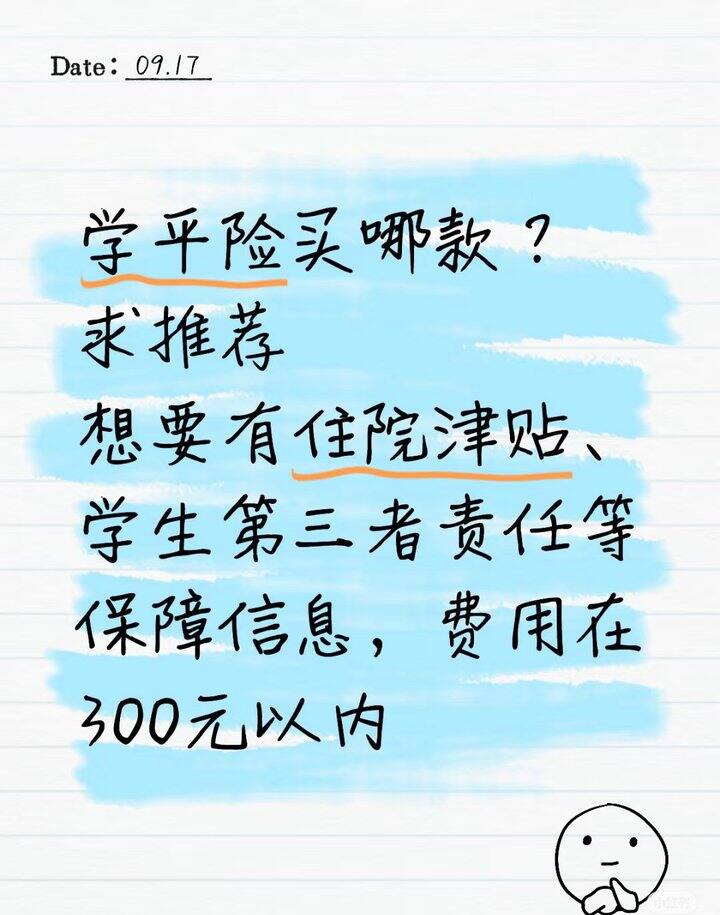 Date: 09.17
学平险买哪款？
求推荐
想要有住院津贴、
学生第三者责任等
保障信息，费用在
300元以内
小红书